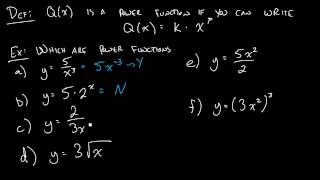 DEF: Q(x) IS A POWER FUNCTION IF YOU CAN WRITE
Q(x) = K · x^P
EX: WHICH ARE POWER FUNCTIONS
a) y = 5/x³ = 5x⁻³ → Y
b) y = 5·2^x = N
c) y = 2/3x
d) y = 3√x
e) y = 5x²/2
f) y = (3x²)³